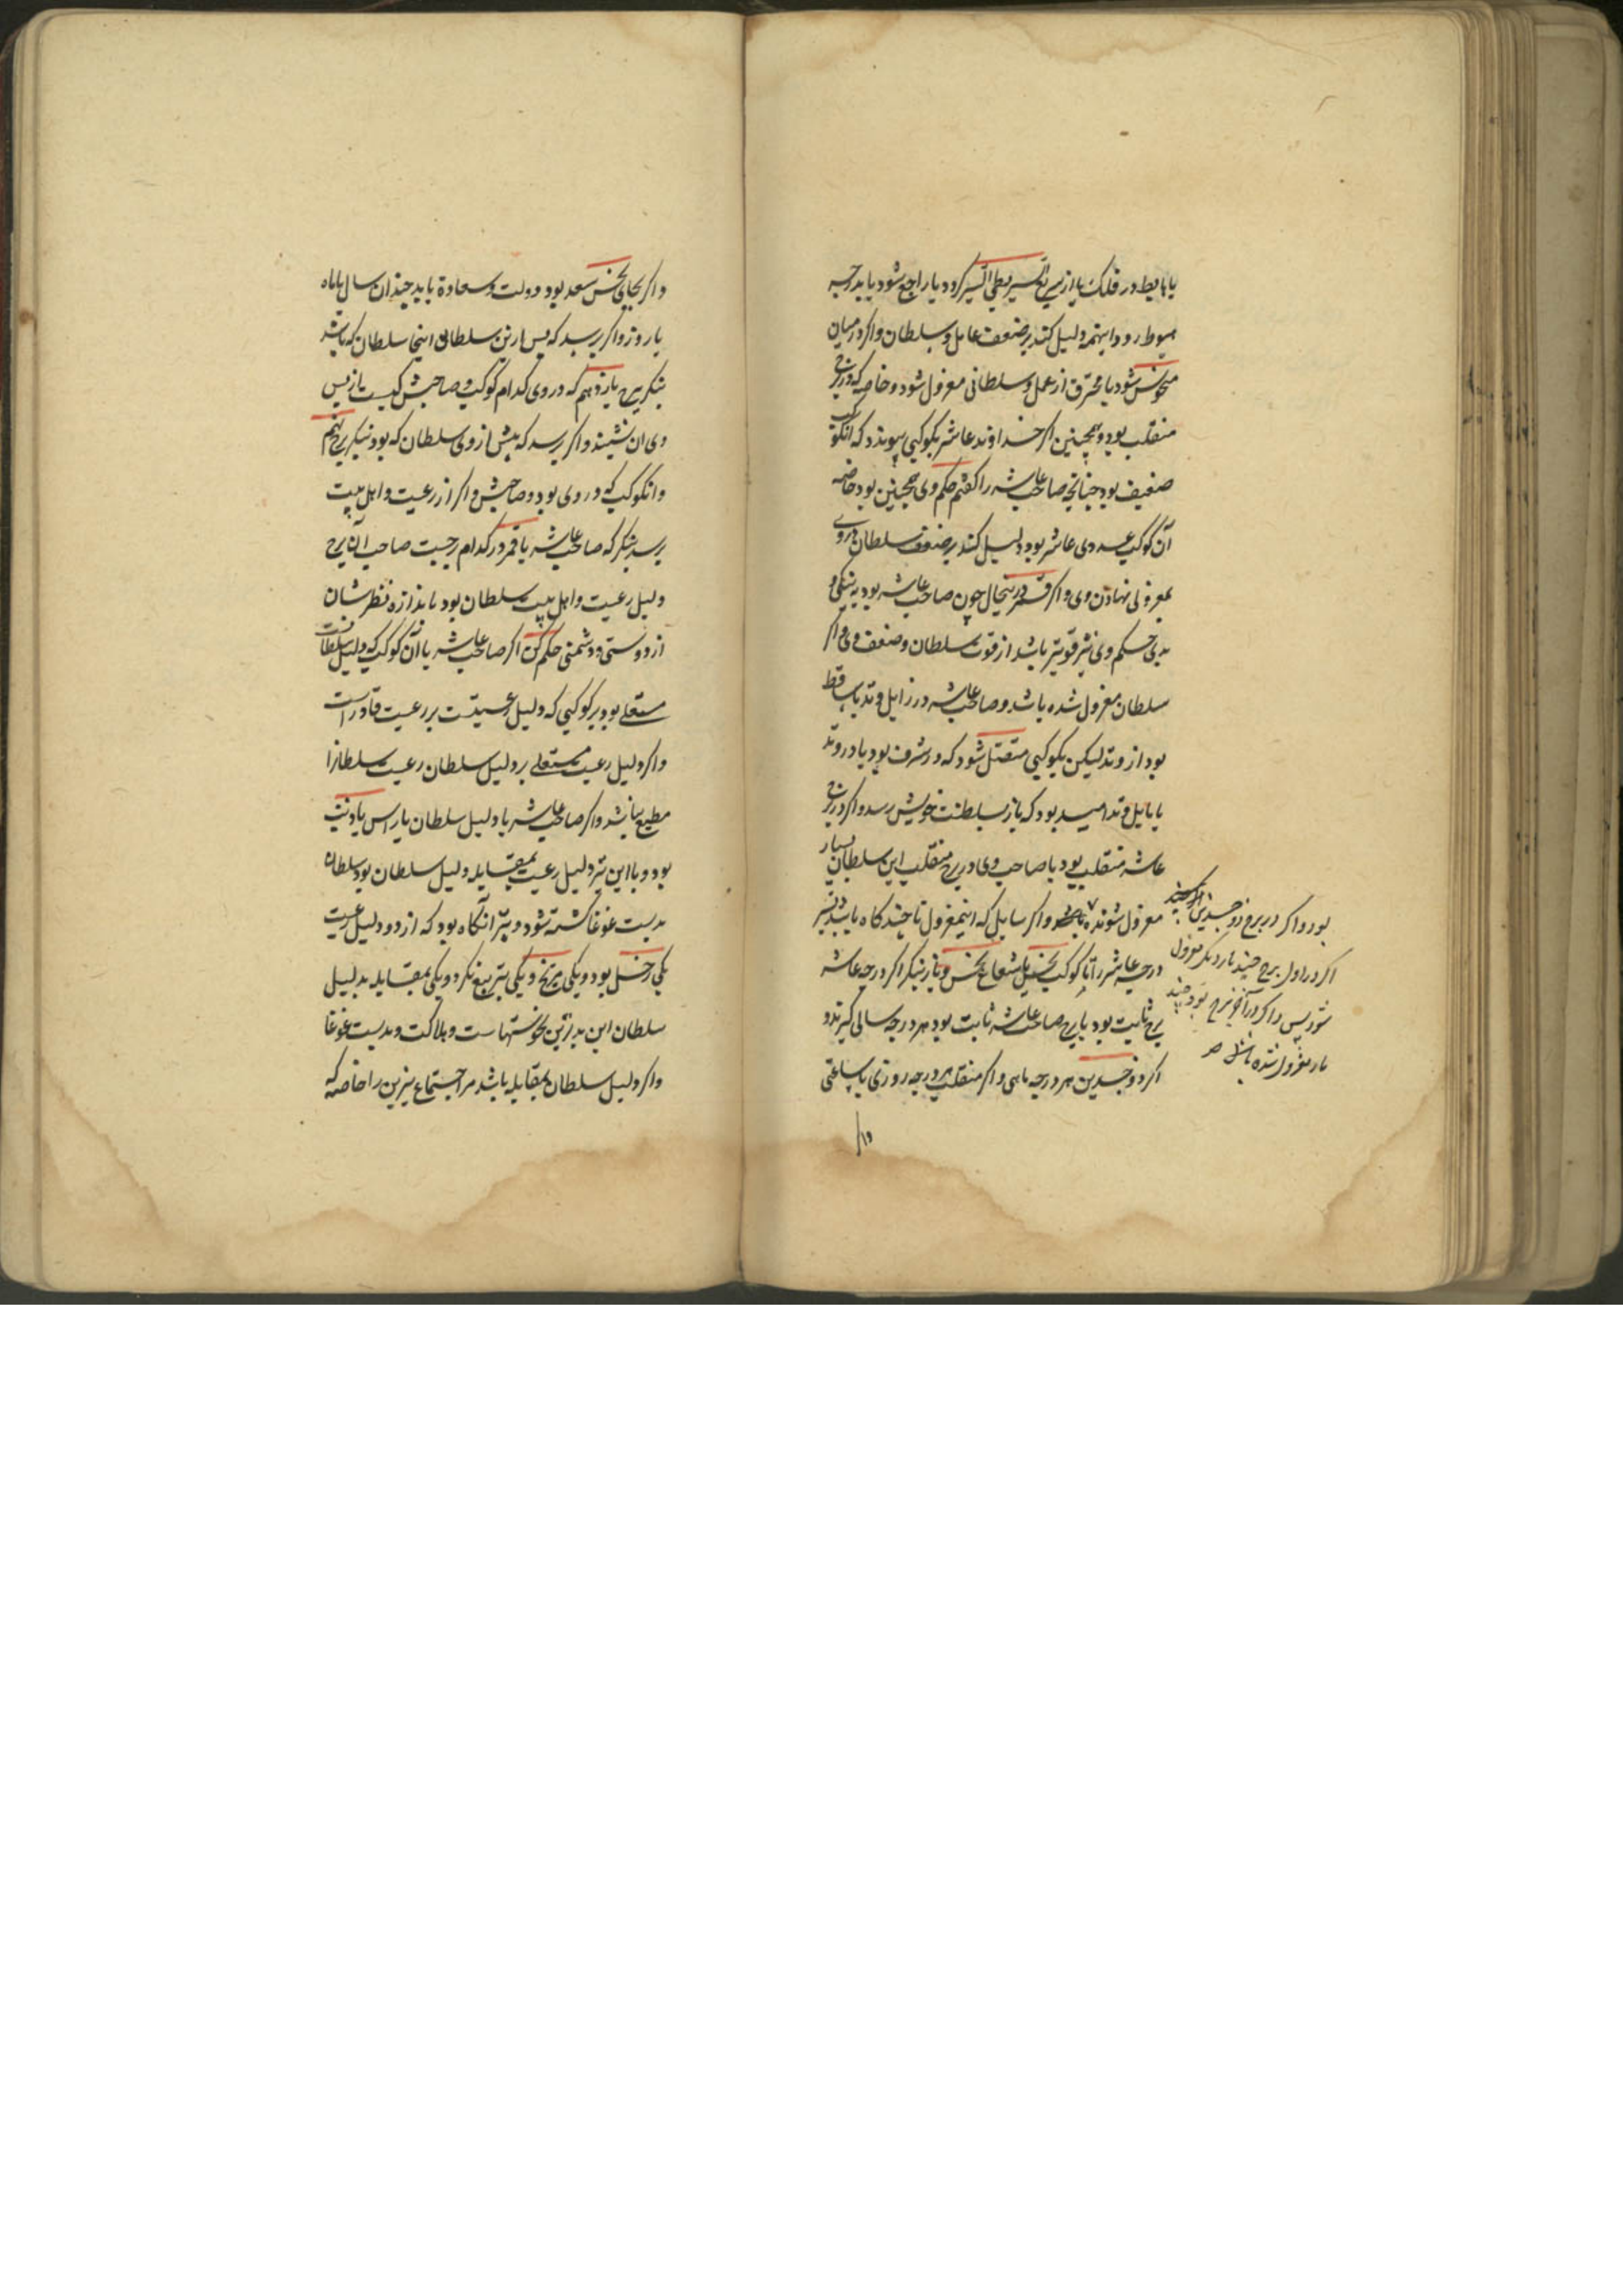 یا هابط در فلک یا از سریع السیر بطی السیر کردد یا راجع شود یا بدرجه
هبوط رود اینهمه دلیل کند بر ضعف عامل و سلطان و اکر در میان
منحوس شود یا محترق از عمل و سلطانی معزول شود و خاصه که در برج
منقلب بود و همچنین اکر خداوند عاشر بکوکبی پیوندد که آنکوکب
ضعیف بود چنانچه صاحب عاشر را کفتم حکم وی همچنین بود خاصه
آن کوکب عدوی عاشر بود دلیل کند بر ضعف سلطان و روی
بمعزولی نهادن وی و اکر قمر درینحال چون صاحب عاشر بود به نیکی و
بدی حکم وی نیز قویتر باشد از قوت سلطان و ضعف وی و اکر
سلطان معزول شده باشد و صاحب عاشر در زایل وتد یا ساقط
بود از وتد لیکن بکوکبی متصل شود که در شرف بود یا در وتد
یا مایل وتد امید بود که باز بسلطنت خویش رسد و اکر در برج
عاشر منقلب بود یا صاحب وی در برج منقلب این سلطان بسیار
معزول شونده باشد و اکر سایل که این معزول تا چند کاه باشد بنکر
درجه عاشر را تا کوکب نحس یا شعاع نحس و نیز بنکر اکر درجه عاشر
برج ثابت بود یا برج صاحب عاشر ثابت بود هر درجه سالی کیرند و
اکر ذوجسدین هر درجه ماهی و اکر منقلب هر درجه روزی یا ساعتی
بود و اکر در برج ذوجسدین
اکر در اول برج چند بار دیکر معزول
شود پس و اکر در آخر برج بود چند
بار معزول شده باشد صح
و اکر بجای نحس سعد بود دولت و سعادة باید چندان سال یا ماه
یا روز و اکر پرسد که پس ازین سلطان اینجا سلطان که باشد
بنکر برج یازدهم که در وی کدام کوکب و صاحبش کیست باز پس
وی ان نشیند و اکر پرسد که پیش از وی سلطان که بود بنکر برج نهم
و انکوکب که در وی بود و صاحبش و اکر از رعیت و اهل بیت
پرسد بنکر که صاحب عاشر یا قمر در کدام برجست صاحب آن برج
دلیل رعیت و اهل بیت سلطان بود باندازه نظرشان
از دوستی و دشمنی حکم کن اکر صاحب عاشر یا آن کوکب که دلیل سلطانست
مستعلی بود بر کوکبی که دلیل رعیتست بر رعیت قادر است
و اکر دلیل رعیت مستعلی بر دلیل سلطان رعیت سلطانرا
مطیع نباشد و اکر صاحب عاشر یا دلیل سلطان با راس یا ذنب
بود و با این نیز دلیل رعیت بمقابله دلیل سلطان بود سلطان
بدست غوغا کشته شود و بتر آنکاه بود که از دو دلیل رعیت
یکی زحل بود و یکی مریخ و یکی بتربیع نکرد و یکی بمقابله بدلیل
سلطان این بدترین نحوستهاست و هلاکت و بدست غوغا
و اکر دلیل سلطان بمقابله باشد مر اجتماع نیرین را خاصه که